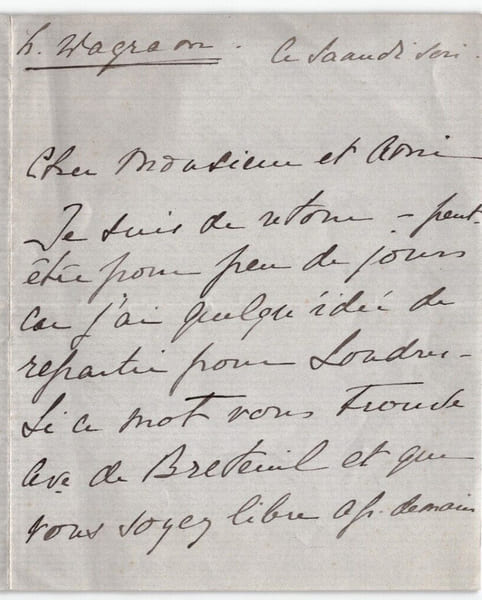 h. Wagram. Ce samedi soir.
Cher Monsieur et Ami
Je suis de retour – peut-
être pour peu de jours
car j'ai quelqu'idée de
repartir pour Londres –
Si ce mot vous trouve
Ave de Breteuil et que
vous soyez libre ap. demain